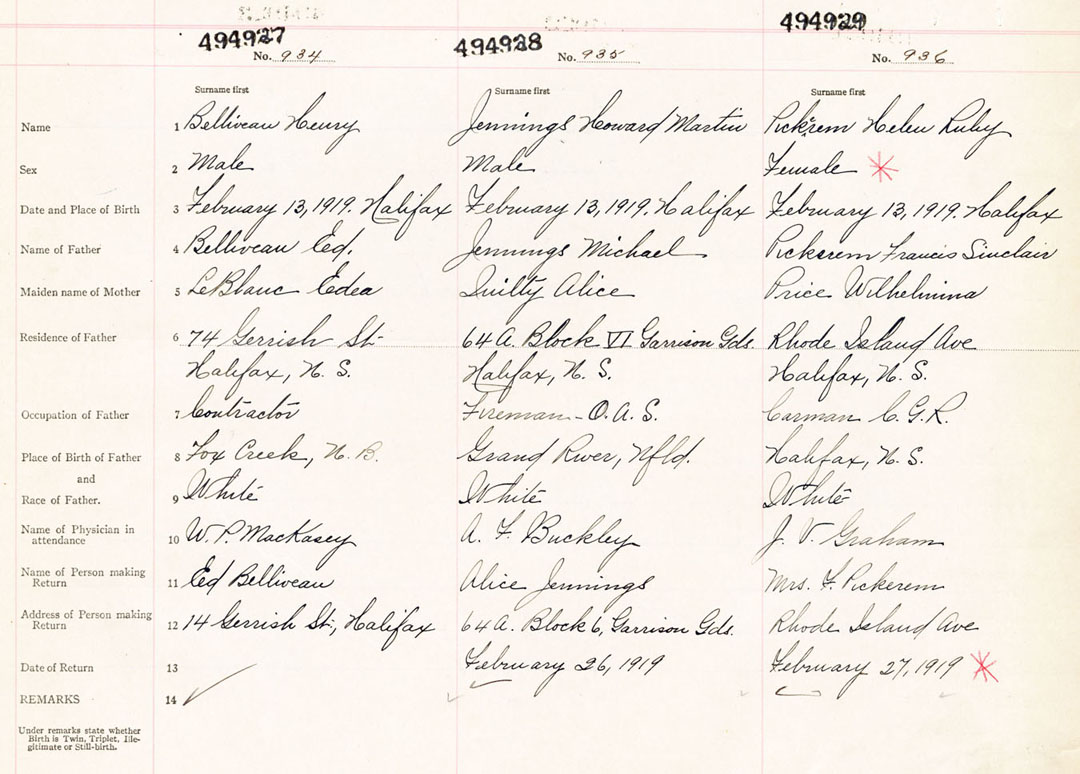 494927
494928
494929
No. 934
No. 935
No. 936
Surname first
Surname first
Surname first
Name
1 Belliveau Henry
Jennings Howard Martin
Pickrem Helen Ruby
Sex
2 Male
Male
Female
Date and Place of Birth
3 February 13, 1919. Halifax
February 13, 1919. Halifax
February 13, 1919. Halifax
Name of Father
4 Belliveau Ed.
Jennings Michael
Pickerem Francis Sinclair
Maiden name of Mother
5 LeBlanc Edea
Quilty Alice
Price Wilhelmina
Residence of Father
6 74 Gerrish St.
64 A. Block VI Garrison Gds.
Rhode Island Ave
Halifax, N. S.
Halifax, N. S.
Halifax, N. S.
Occupation of Father
7 Contractor
Fireman - O. A. S.
Carman C. G. R.
Place of Birth of Father
8 Fox Creek, N. B.
Grand River, Nfld.
Halifax, N. S.
and
Race of Father.
9 White
White
White
Name of Physician in
attendance
10 W. P. MacKasey
A. F. Buckley
J. V. Graham
Name of Person making
Return
11 Ed Belliveau
Alice Jennings
Mrs. F. Pickerem
Address of Person making
Return
12 14 Gerrish St., Halifax
64 A. Block 6, Garrison Gds.
Rhode Island Ave
Date of Return
13
February 26, 1919
February 27, 1919
REMARKS
14
Under remarks state whether
Birth is Twin, Triplet, Ille-
gitimate or Still-birth.